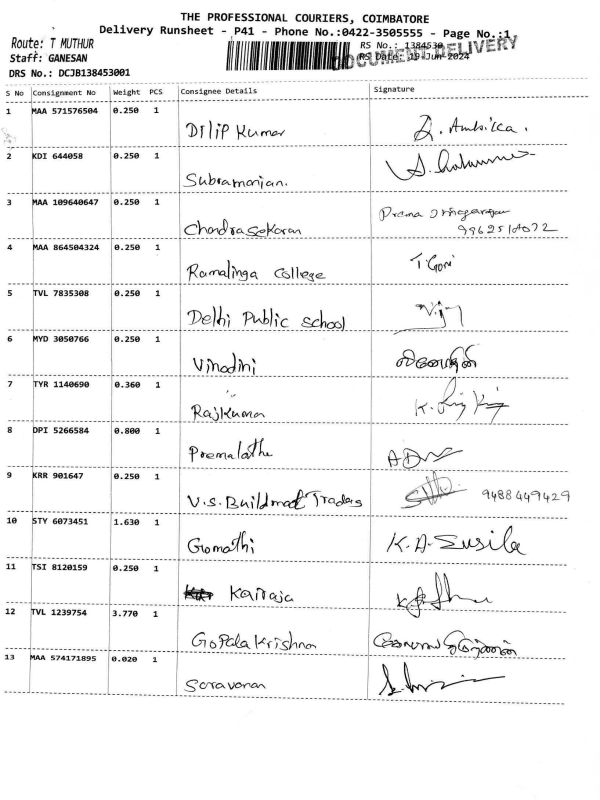 THE PROFESSIONAL COURIERS, COIMBATORE
Delivery Runsheet - P41 - Phone No.:0422-3505555 - Page No.:1
Route: T MUTHUR
RS No.: 1384530
DOCUMENT DELIVERY
Staff: GANESAN
RS Date: 19-Jun-2024
DRS No.: DCJB138453001
S No Consignment No Weight PCS Consignee Details Signature
1 MAA 571576504 0.250 1 Dilip Kumar R. Ambika.
2 KDI 644058 0.250 1 Subramanian.
3 MAA 109640647 0.250 1 Chandrasekaran Prema
4 MAA 864504324 0.250 1 Ramalinga College T. Gowri
5 TVL 7835308 0.250 1 Delhi Public School
6 MYD 3050766 0.250 1 Vinodini
7 TYR 1140690 0.360 1 Rajkumar
8 DPI 5266584 0.800 1 Premalatha
9 KRR 901647 0.250 1 V.S. Buildmat Traders 9488449429
10 STY 6073451 1.630 1 Gomathi K.A. Susila
11 TSI 8120159 0.250 1 Kairaja
12 TVL 1239754 3.770 1 Gopala Krishnan
13 MAA 574171895 0.020 1 Saravanan